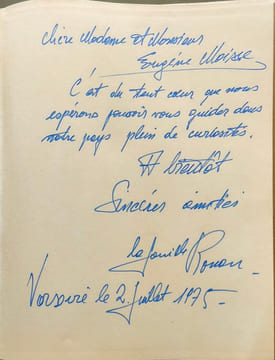 Chère Madame et Monsieur
Eugène Moisse
C'est du tout cœur que nous
espérons pouvoir vous guider dans
notre pays plein de curiosités.
A bientôt
Sincères amitiés
la famille
le 2 Juillet 1975-